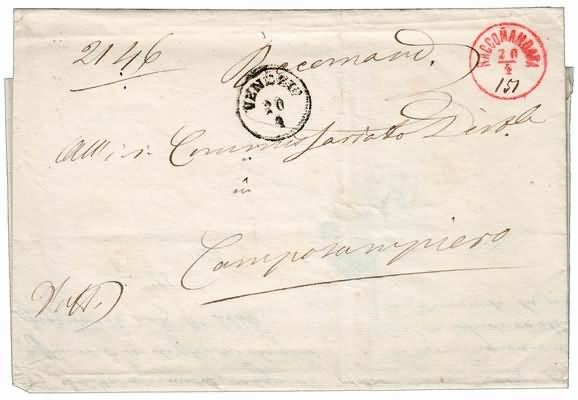 2146 Racomand.
RACCOMANDATA
20
4
151
VENEZIA
20
4
All' i. r. Commissariato Distle
in
Camposampiero